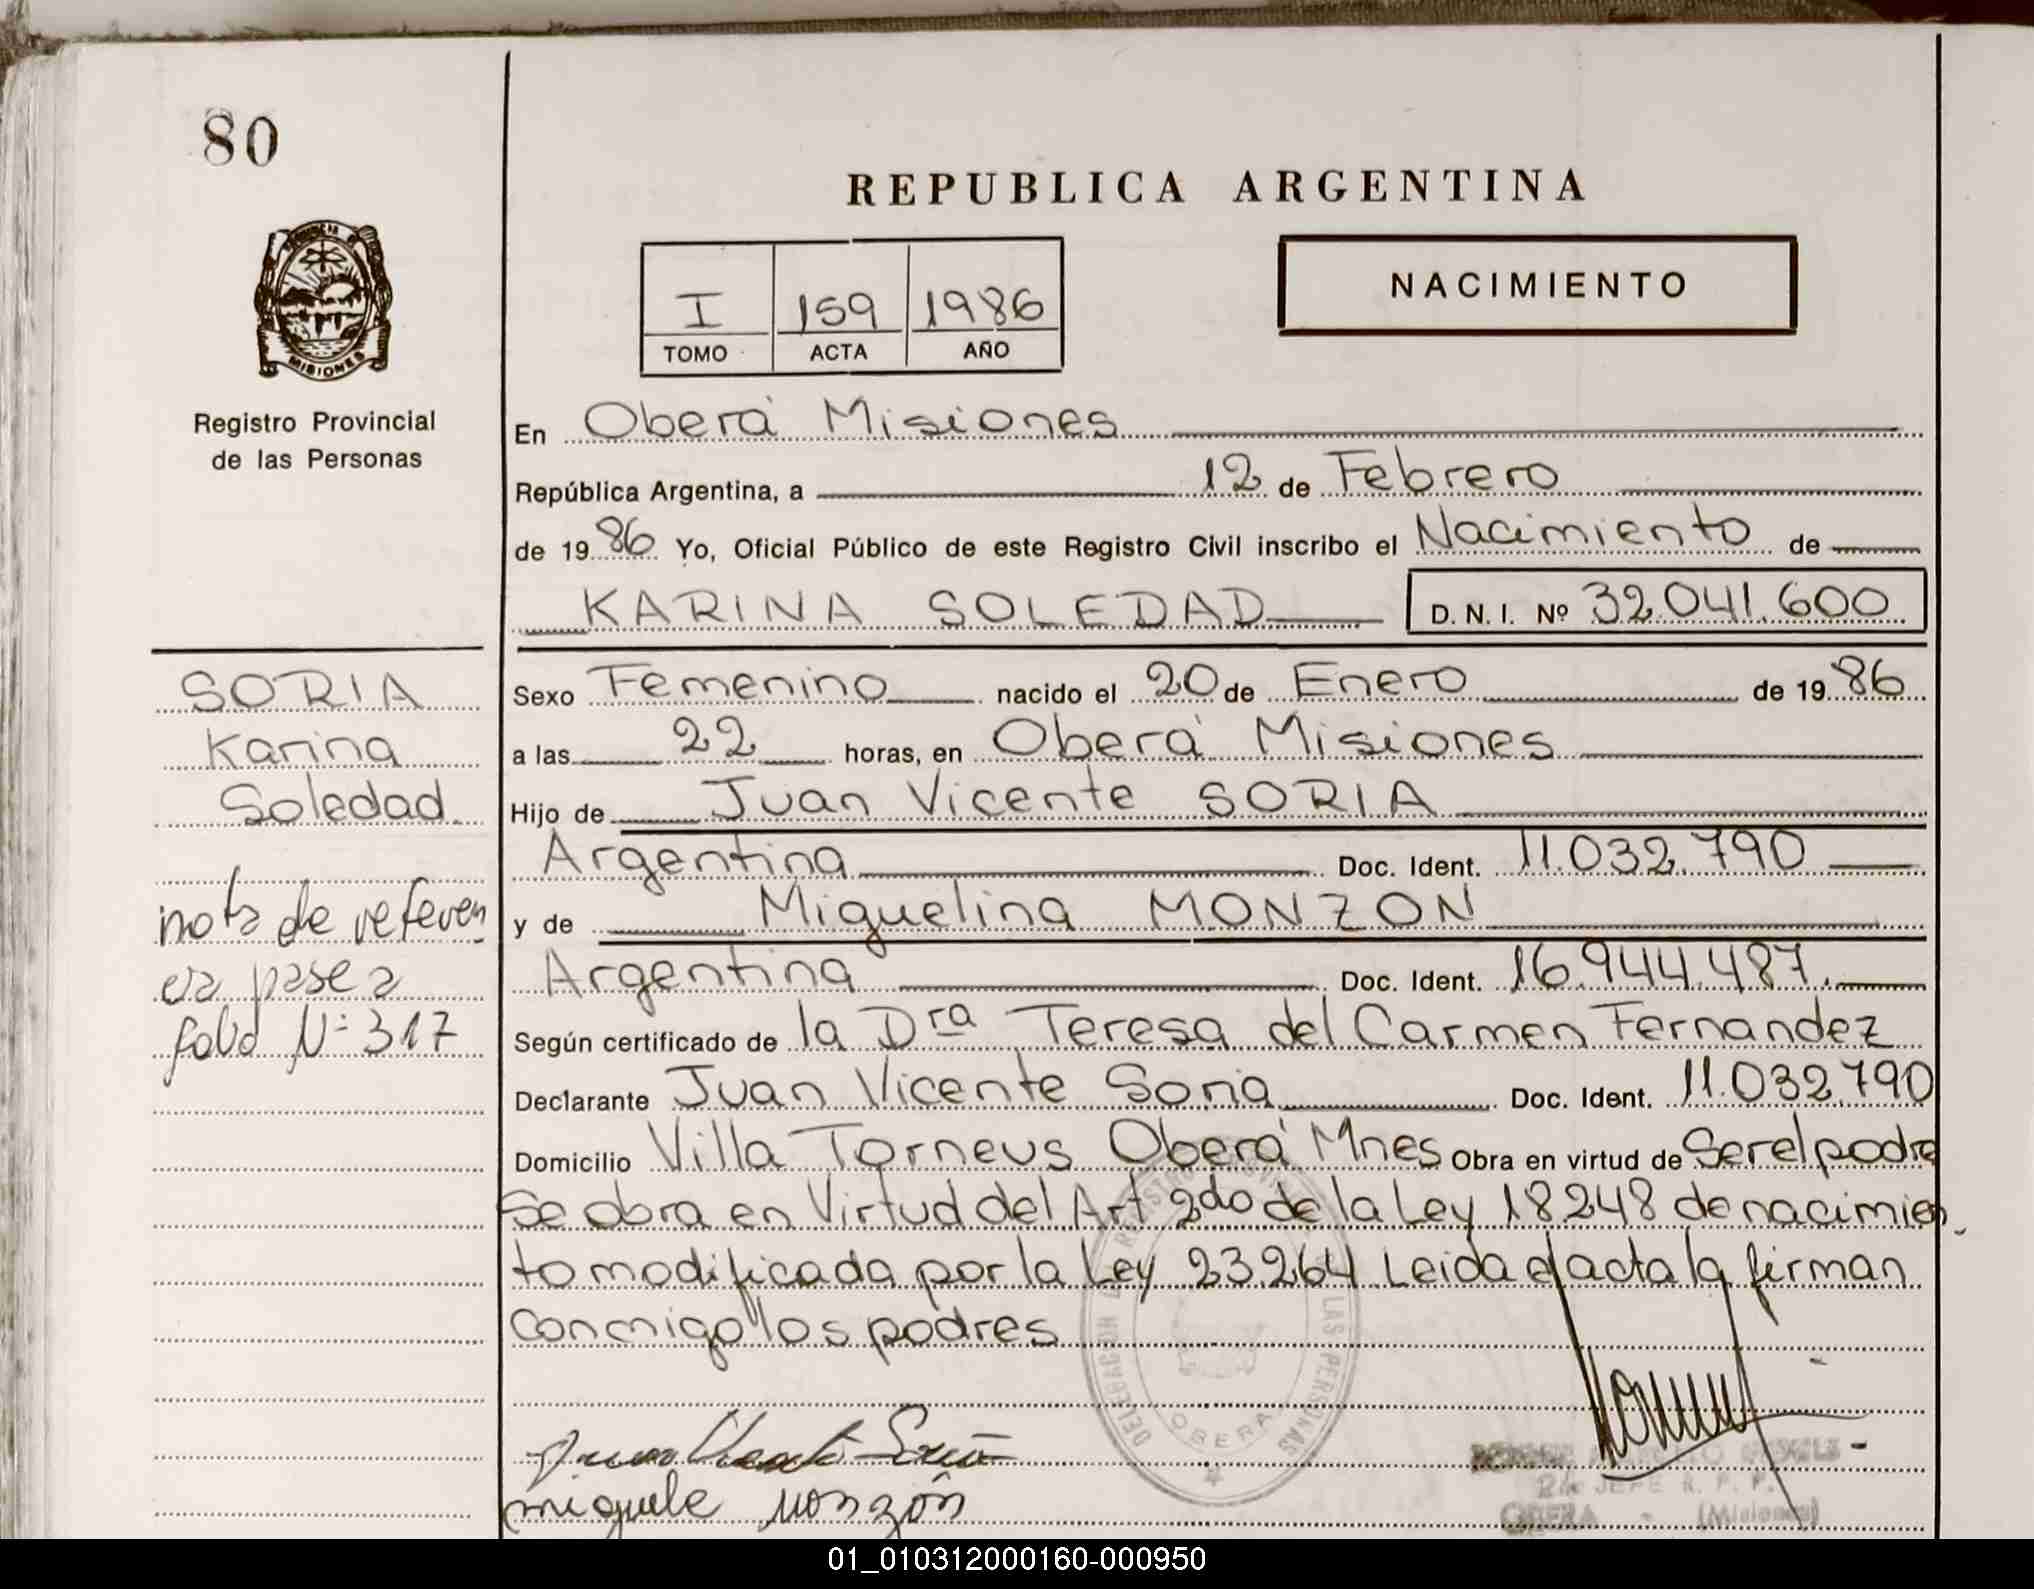 80
REPUBLICA ARGENTINA
NACIMIENTO
I 159 1986
TOMO ACTA AÑO
MISIONES
Registro Provincial
de las Personas
En Oberá Misiones
República Argentina, a 12 de Febrero
de 1986 Yo, Oficial Público de este Registro Civil inscribo el Nacimiento de
KARINA SOLEDAD D. N. I. Nº 32.041.600
SORIA
Karina
Soledad
nota de referen
cia pase a
folio Nº 317
Sexo Femenino nacido el 20 de Enero de 1986
a las 22 horas, en Oberá Misiones
Hijo de Juan Vicente SORIA
Argentina Doc. Ident. 11.032.790
y de Miguelina MONZON
Argentina Doc. Ident. 16.944.487.
Según certificado de la Dra Teresa del Carmen Fernandez
Declarante Juan Vicente Soria Doc. Ident. 11.032.790
Domicilio Villa Torneus Oberá Mnes Obra en virtud de Ser el padre
Se obra en Virtud del Art 2do de la Ley 18248 de nacimien
to modificada por la Ley 23264 Leida el acta la firman
Conmigo los padres
DELEGACION REGISTRO LAS PERSONAS
OBERA
Juan Vicente Soria
miguele monzón
JEFE R. P. P.
OBERA - (Misiones)
01_010312000160-000950